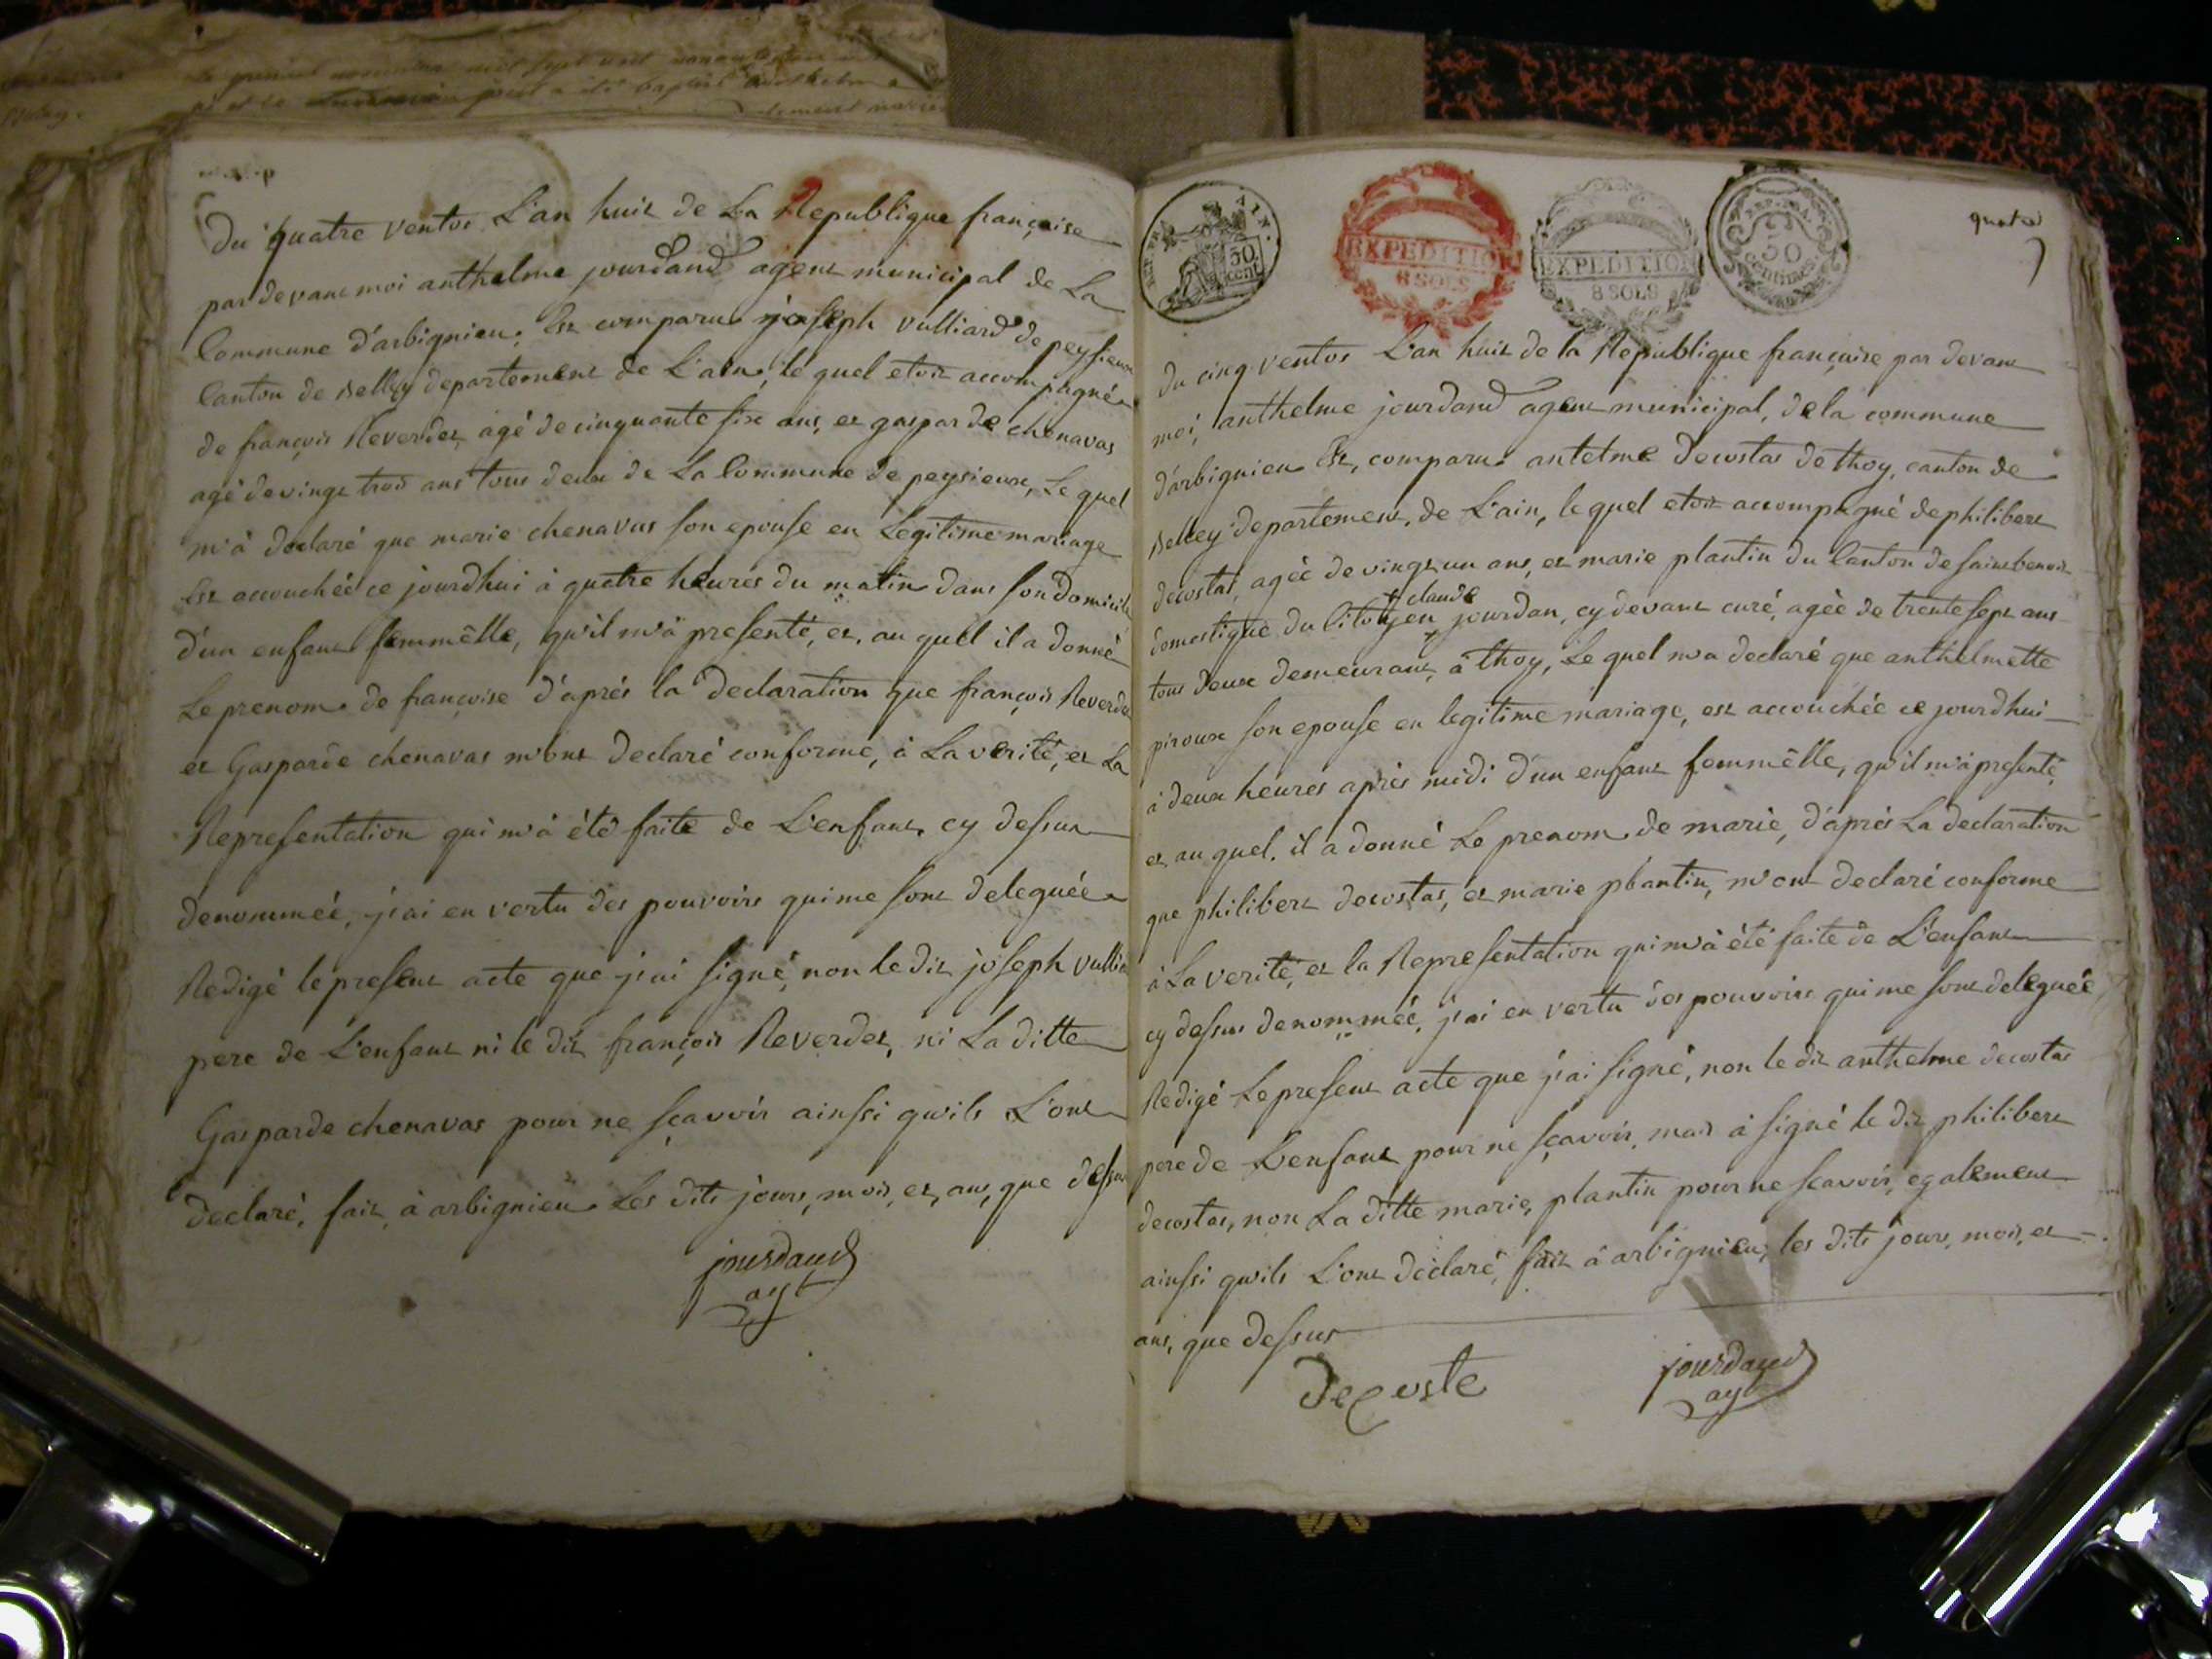 Du quatre ventos L'an huit de La Republique française
par devant moi anthelme jourdand agent municipal de La
Commune d'arbignieu, Est comparu joseph vulliard de peysieux
Canton de Belley departement de L'ain, le quel etoit accompagné
de françois Reverdet agé de cinquante six ans, et gasparde chenavas
agé de vingt trois ans tous deux de La Commune de peysieux, Le quel
m'à declaré que marie chenavas son epouse en Legitime mariage
Est accouchée ce jourdhui à quatre heures du matin dans son domicile
d'un enfant femmêlle, qu'il m'à presenté, et au quel il a donné
Le prenom de françoise d'aprés la declaration que françois Reverdet
et Gasparde chenavas m'ont declaré conforme, à La verité, et La
Representation qui m'à été faite de L'enfant cy dessus
denommée, j'ai en vertu des pouvoirs qui me sont deleguée
Redigé le present acte que j'ai signé, non le dit joseph vulliard
pere de L'enfant ni le dit françois Reverdet, ni La ditte
Gasparde chenavas pour ne sçavoir ainsi qu'ils L'ont
declaré, fait à arbignieu Les dits jours, mois, et, ans, que dessus
jourdand
agt
REP. FRA.
AIN.
50
cent
EXPEDITION
8 SOLS
EXPEDITION
8 SOLS
REP. FRA.
50
centimes
quatre
du cinq ventos L'an huit de la Republique française par devant
moi, anthelme jourdand agent municipal, de la commune
d'arbignieu Est, comparu antelme decostas de thoy, canton de
Belley departement, de L'ain, le quel etoit accompagné de philibert
decostas, agée de vingt un ans, et marie plantin du Canton de saint benoit
claude
domestique du Citoyen jourdan, cy devant curé, agée de trente sept ans
tous deux demeurant, à thoy, Le quel m'a declaré que anthelmette
piroux son epouse en legitime mariage, est accouchée ce jourdhui
à deux heures aprés midi d'un enfant femmêlle, qu'il m'à presenté,
et au quel, il a donné Le prenom de marie, d'aprés La declaration
que philibert decostas, et marie plantin, m'ont declaré conforme
à La verité, et la Representation qui m'à été faite de L'enfant
cy dessus denommée, j'ai en vertu des pouvoirs qui me sont deleguée
Redigé Le present acte que j'ai signé, non le dit anthelme decostas
pere de L'enfant pour ne sçavoir, mais à signé le dit philibert
decostas, non La ditte marie, plantin pour ne sçavoir, egalement
ainsi qu'ils L'ont declaré, fait à arbignieu, les dits jours, mois, et
ans, que dessus
decoste
jourdand
agt